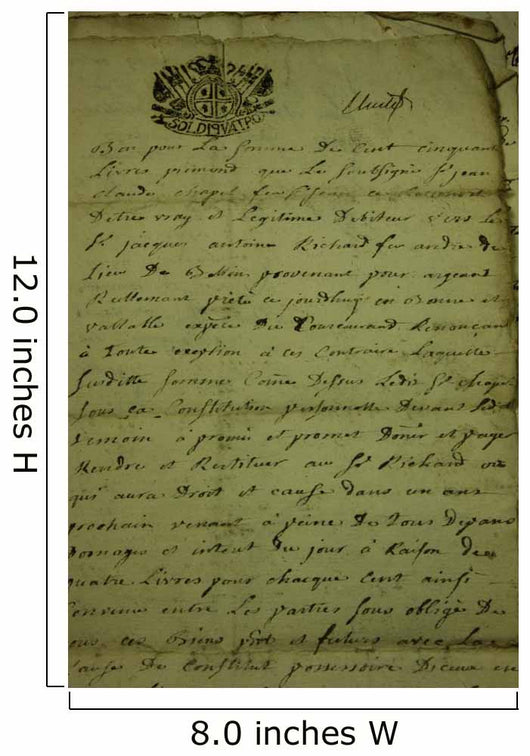 SOLDI QVATRO
Bon pour La somme De Cent cinquant
Livres piemond que Le soussigné Sr jean
claude chapel feu
D'etre vray et Legitime Debiteur vers le
Sr jacques antoine Richard feu andre de
Lieu De provenant pour argeant
Reellemant prété ce jourdhuy en Bonne et
vallable espece Du Renonçant
à Toute exeption à ces Contraire Laquelle
susditte somme Come Dessus Ledit Sr chapel
sous sa Constitution personnelle Devant
Temoin a promis et promet Doner et payer
Rendre et Restituer au Sr Richard ou
qui aura Droit et cause dans un ans
prochain venant à peine De Tous Depans
Domages et interet Du jour à Raison de
quatre Livres pour chacque Cent ainsi
convenu entre Les parties sous obligé De
tous ces Biens pnt et futurs avec La
clause De Constitut possessoire
12.0 inches H
8.0 inches W